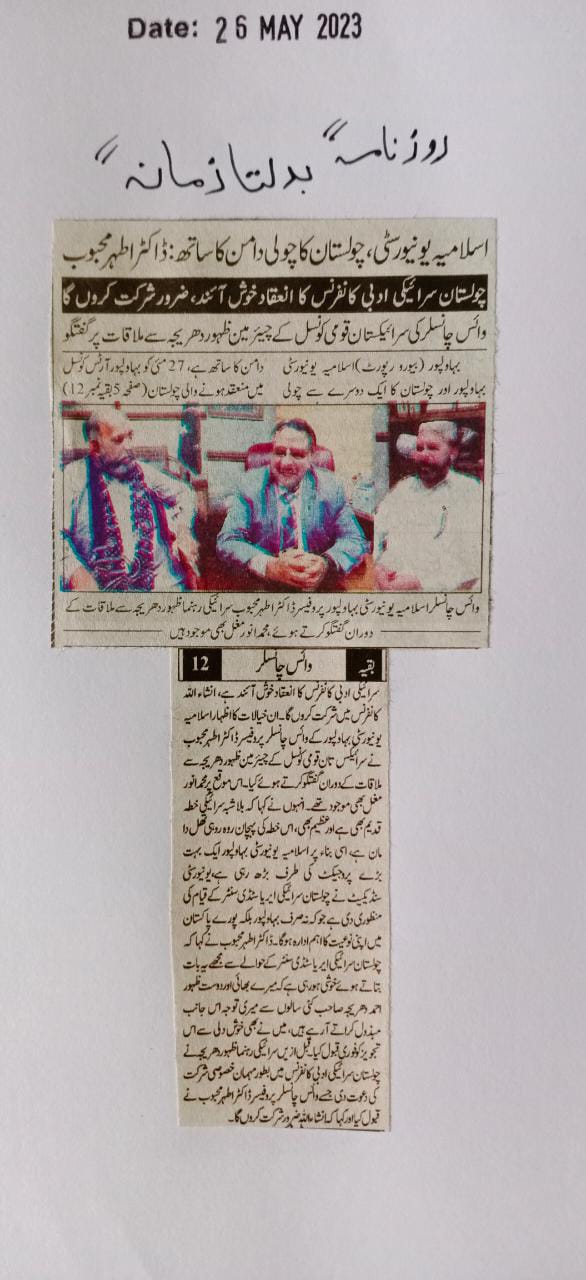 Date: 26 MAY 2023
روزنامہ "بدلتا زمانہ"
اسلامیہ یونیورسٹی، چولستان کا چولی دامن کا ساتھ: ڈاکٹر اطہر محبوب
چولستان سرائیکی ادبی کانفرنس کا انعقاد خوش آئند، ضرور شرکت کروں گا
وائس چانسلر کی سرائیکستان قومی کونسل کے چیئرمین ظہور دھریجہ سے ملاقات پر گفتگو
بہاولپور (بیورو رپورٹ) اسلامیہ یونیورسٹی
بہاولپور اور چولستان کا ایک دوسرے سے چولی
دامن کا ساتھ ہے، 27 مئی کو بہاولپور آرٹس کونسل
میں منعقد ہونے والی چولستان (صفحہ 5 بقیہ نمبر 12)
وائس چانسلر اسلامیہ یونیورسٹی بہاولپور پروفیسر ڈاکٹر اطہر محبوب سرائیکی رہنما ظہور دھریجہ سے ملاقات کے
دوران گفتگو کرتے ہوئے، محمد انور مغل بھی موجود ہیں
بقیہ وائس چانسلر 12
سرائیکی ادبی کانفرنس کا انعقاد خوش آئند ہے، انشاء اللہ
کانفرنس میں شرکت کروں گا۔ ان خیالات کا اظہار اسلامیہ
یونیورسٹی بہاولپور کے وائس چانسلر پروفیسر ڈاکٹر اطہر محبوب
نے سرائیکستان قومی کونسل کے چیئرمین ظہور دھریجہ سے
ملاقات کے دوران گفتگو کرتے ہوئے کیا۔ اس موقع پر محمد انور
مغل بھی موجود تھے۔ انہوں نے کہا کہ بلاشبہ سرائیکی خطہ
قدیم بھی ہے اور عظیم بھی، اس خطہ کی پہچان روہ روہی تھل دا
مان ہے، اسی بناء پر اسلامیہ یونیورسٹی بہاولپور ایک بہت
بڑے پروجیکٹ کی طرف بڑھ رہی ہے، یونیورسٹی
سنڈیکیٹ نے چولستان سرائیکی ایریا سٹڈی سنٹر کے قیام کی
منظوری دی ہے جو کہ نہ صرف بہاولپور بلکہ پورے پاکستان
میں اپنی نوعیت کا اہم ادارہ ہوگا۔ ڈاکٹر اطہر محبوب نے کہا کہ
چولستان سرائیکی ایریا سٹڈی سنٹر کے حوالے سے مجھے یہ بات
بتاتے ہوئے خوشی ہو رہی ہے کہ میرے بھائی اور دوست ظہور
احمد دھریجہ صاحب کئی سالوں سے میری توجہ اس جانب
مبذول کراتے آ رہے ہیں، میں نے بھی خوش دلی سے اس
تجویز کو فوری قبول کیا۔ قبل ازیں سرائیکی رہنما ظہور دھریجہ نے
چولستان سرائیکی ادبی کانفرنس میں بطور مہمان خصوصی شرکت
کی دعوت دی جسے وائس چانسلر پروفیسر ڈاکٹر اطہر محبوب نے
قبول کیا اور کہا کہ انشاء اللہ ضرور شرکت کروں گا۔